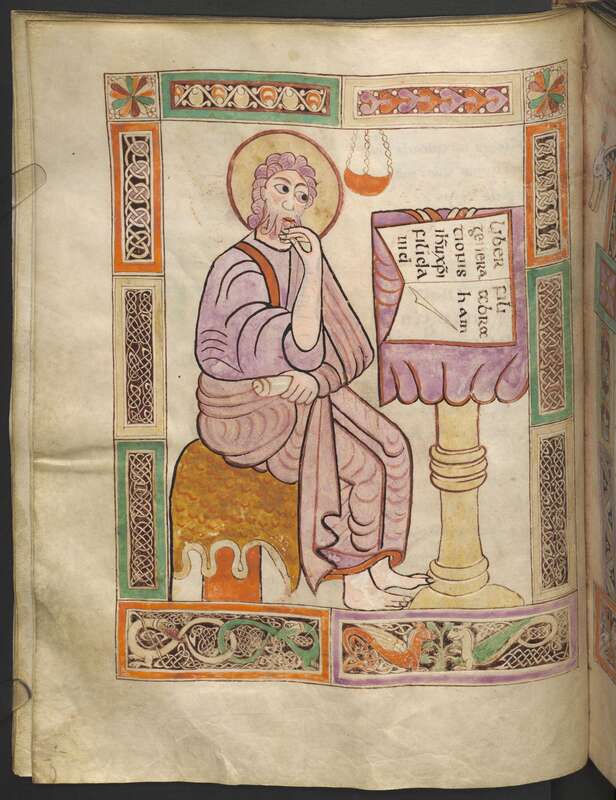 Liber
genera
tionis
ihu xpi
fili da
uid
fili
abra
ham